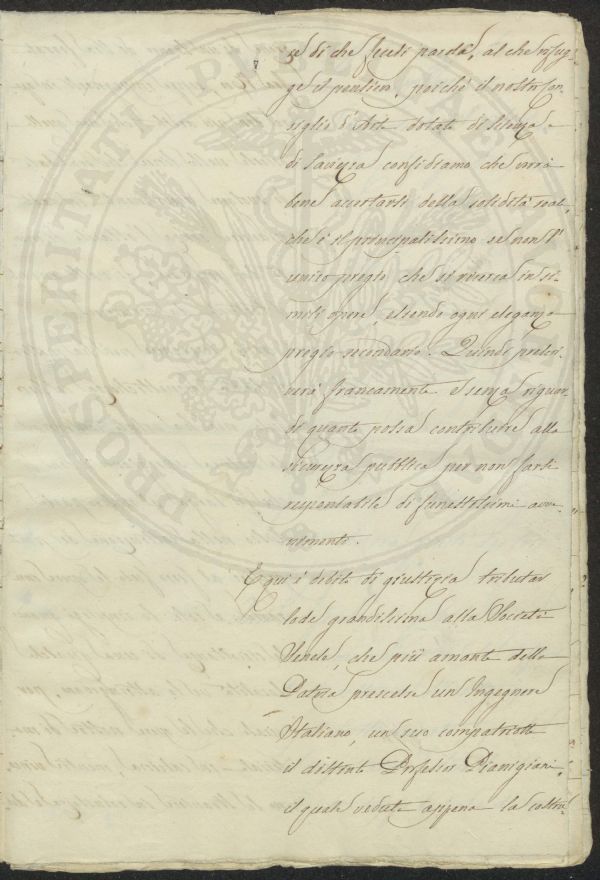 se di che feceli parola, al che rifug-
ge il pensiero, poichè il nostro Con-
siglio d'Arte dotato di scienza e
di saviezza confidiamo che vorrà
bene accertarsi della solidità real,
che è il principalissimo se non l'
unico pregio che si ricerca in si-
mili opere, essendo ogni eleganza
pregio secondario. Quindi prescri-
verà francamente e senza riguar-
di quanto possa contribuire alla
sicurezza pubblica per non farsi
responsabile di funestissimi avve-
nimenti.
E qui è debito di giustizia tributar
lode grandissima alla Società
Senese, che più amante della
Patria prescelse un Ingegnere
Italiano, un suo compatriotto
il distinto Professor Pianigiani,
il quale veduta appena la costru-
PROSPERITATI PUBLICAE